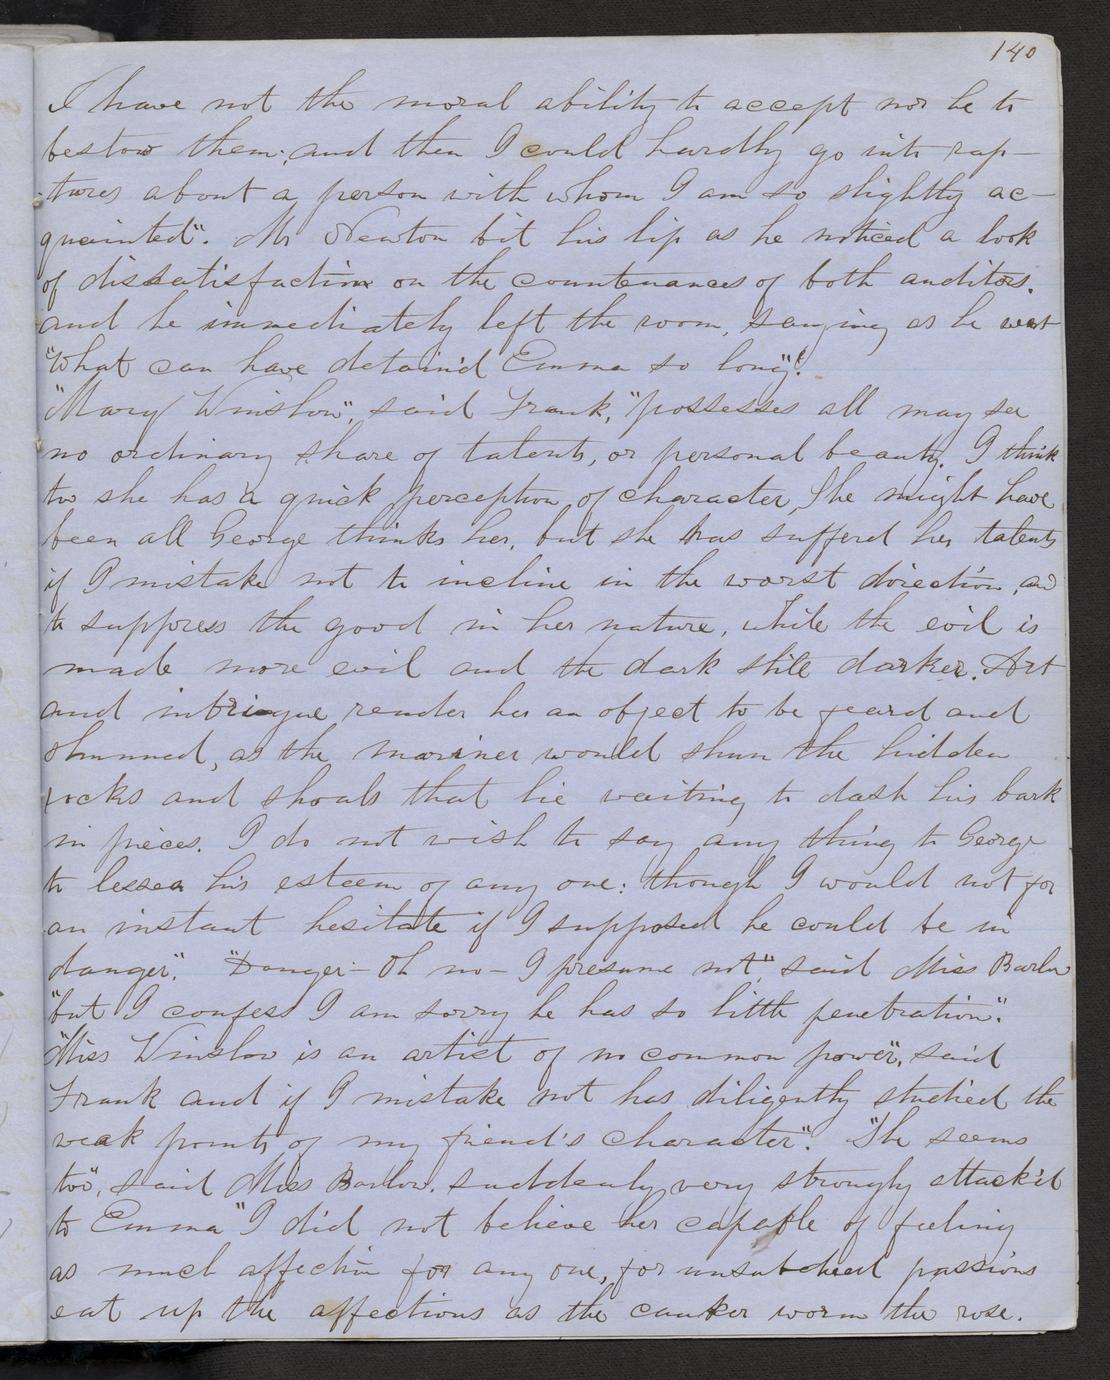 140
I have not the moral ability to accept nor he to
bestow them; and then I could hardly go into rap-
-tures about a person with whom I am so slightly ac-
quainted". Mr Newton bit his lip as he noticed a look
of dissatisfaction on the countenances of both auditors.
and he immediately left the room, saying as he went
"what can have detain'd Emma so long"?
"Mary Winslow", said Frank, "possesses all may see
no ordinary share of talents, or personal beauty. I think
too she has a quick perception of character, She might have
been all George thinks her, but she has sufferd her talents
if I mistake not to incline in the worst direction, and
to suppress the good in her nature, while the evil is
made more evil and the dark still darker. Art
and intrigue render her an object to be feard and
shunned, as the mariner would shun the hidden
rocks and shoals that lie waiting to dash his bark
in pieces. I do not wish to say any thing to George
to lessen his esteem of any one: though I would not for
an instant hesitate if I supposed he could be in
danger". "Danger- Oh no- I presume not" said Miss Barlow
"but I confess I am sorry he has so little penetration".
"Miss Winslow is an artist of no common power", said
Frank and if I mistake not has diligently studied the
weak points of my friend's character". "She seems
too", said Miss Barlow. suddenly very strongly attack'd
to Emma" I did not believe her capable of feeling
as much affection for any one, for unsubdued passions
eat up the affections as the canker worm the rose.